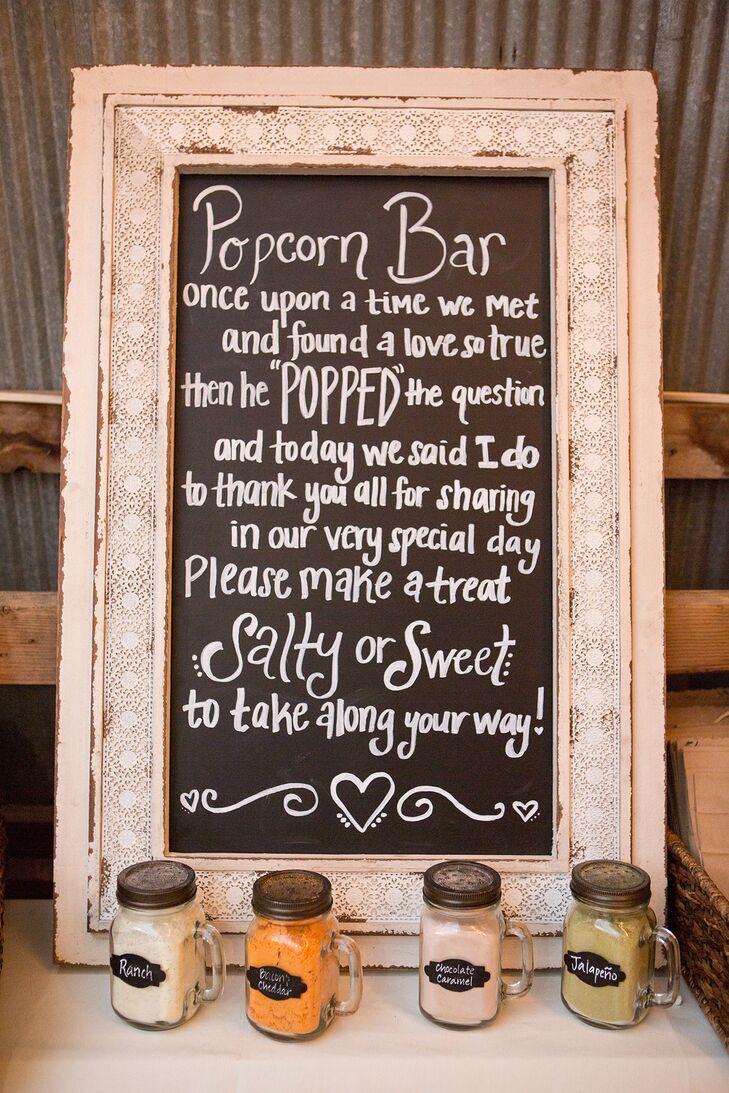 Popcorn Bar
once upon a time we met
and found a love so true
then he "POPPED" the question
and today we said I do
to thank you all for sharing
in our very special day
Please make a treat
Salty or Sweet
to take along your way!
Ranch
Bacon & Cheddar
Chocolate
Caramel
Jalapeño